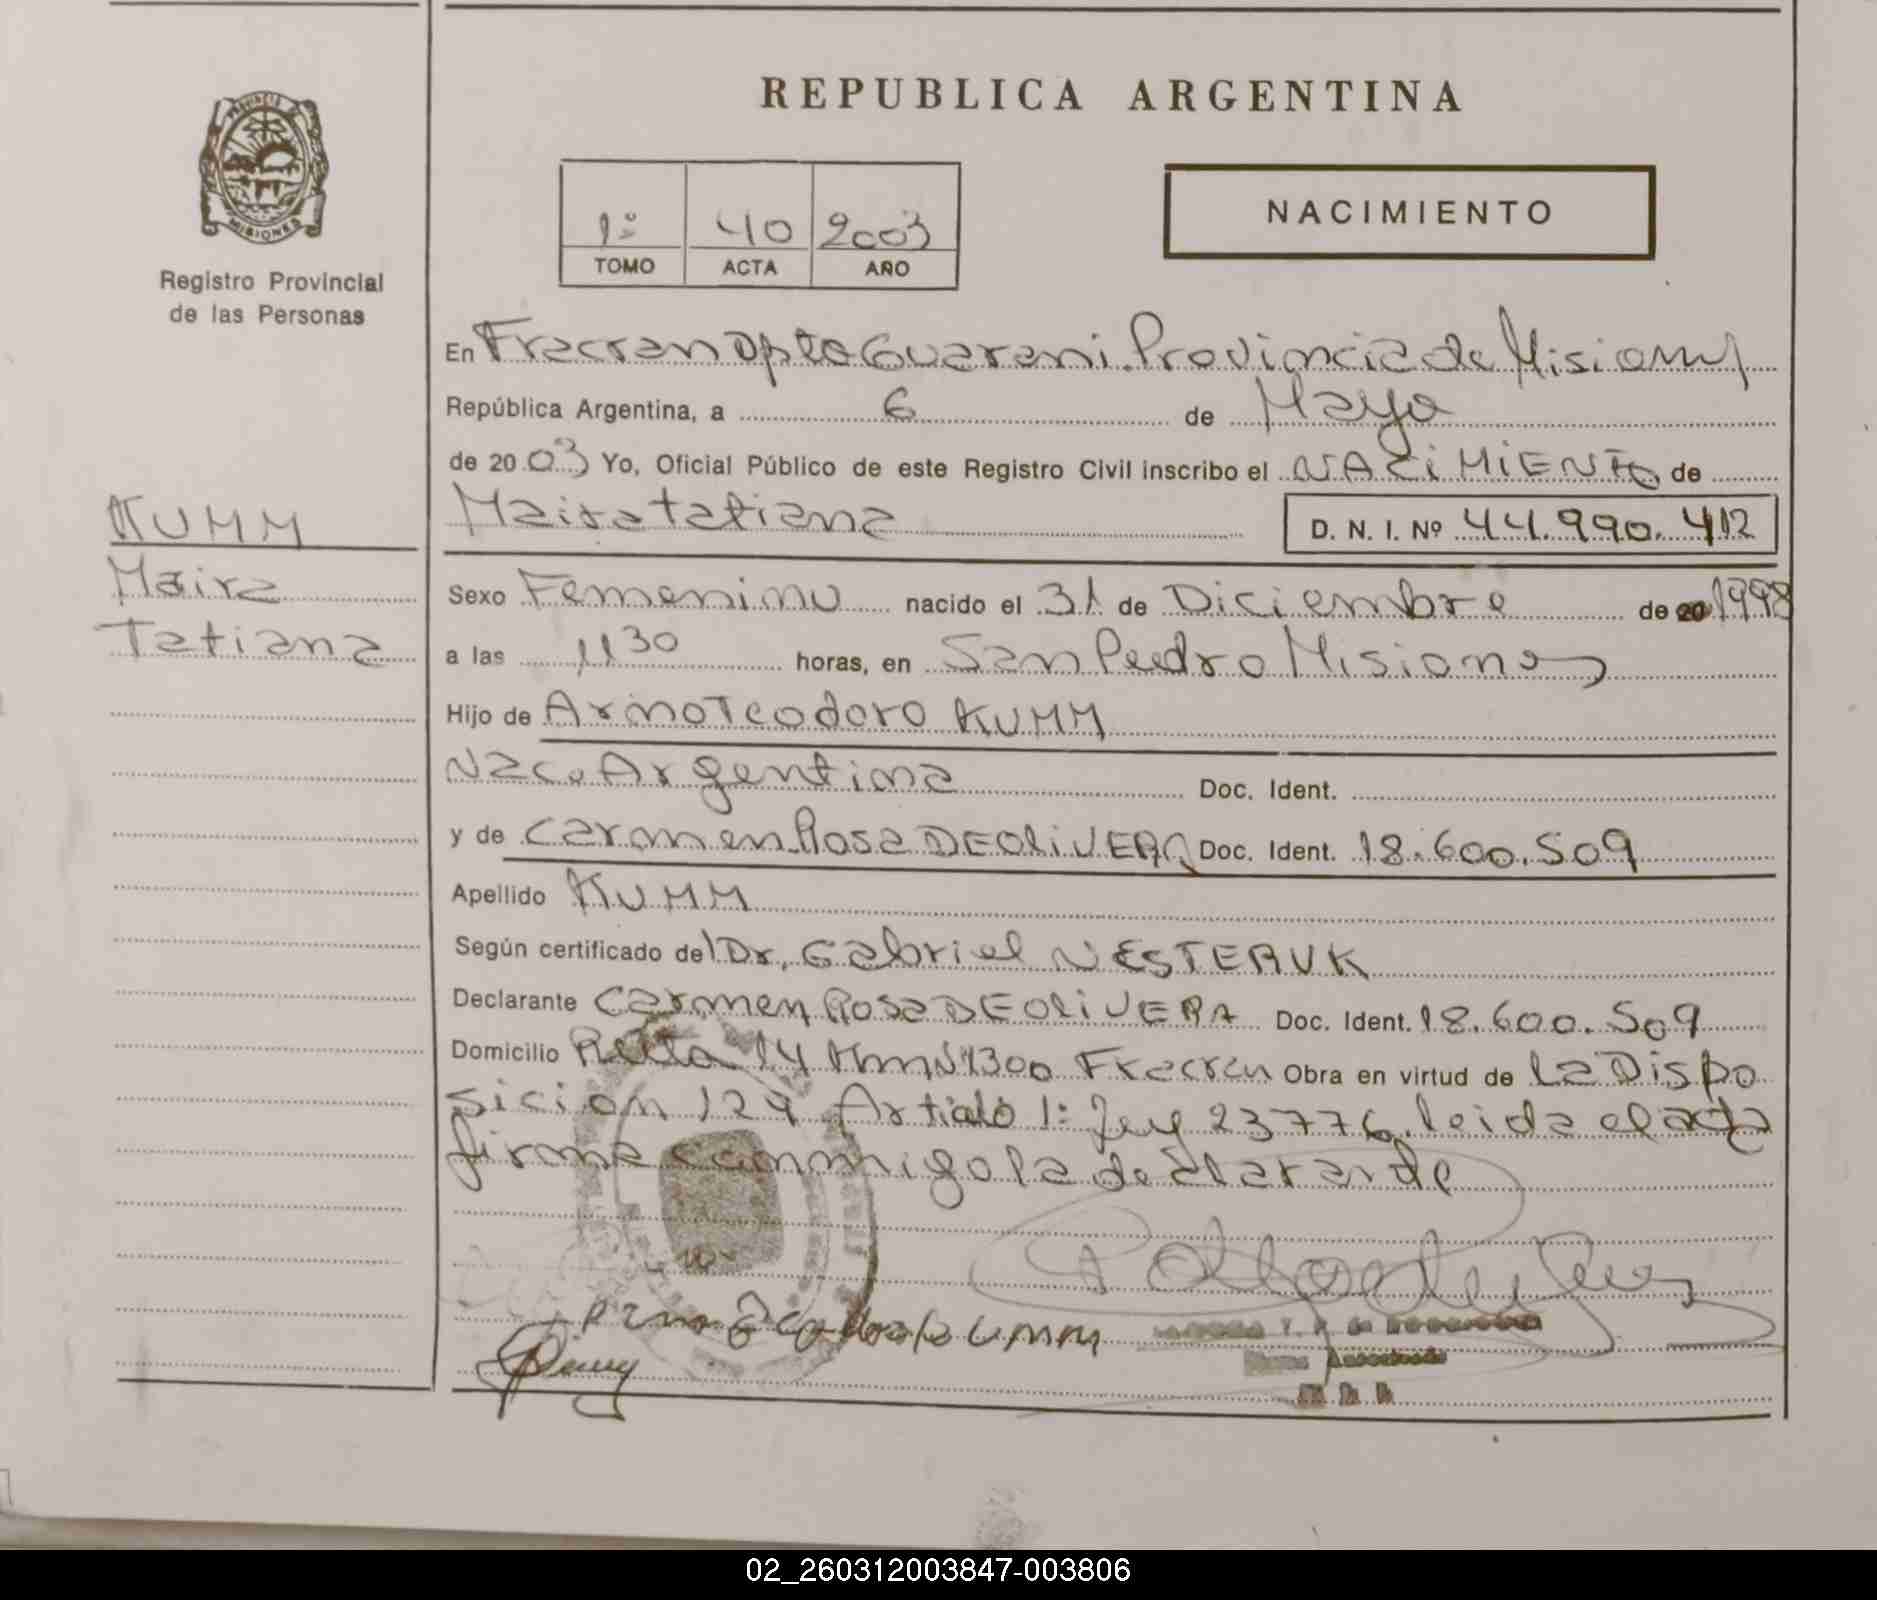 REPUBLICA ARGENTINA
PROVINCIA DE MISIONES
Registro Provincial
de las Personas
1º 40 2003
TOMO ACTA AÑO
NACIMIENTO
En Fracran Dpto Guarani. Provincia de Misiones
República Argentina, a 6 de Mayo
de 2003 Yo, Oficial Público de este Registro Civil inscribo el NACiMiENTO de
Maira tatiana D. N. I. Nº 44.990.412
KUMM
Maira
Tatiana
Sexo Femenino nacido el 31 de Diciembre de 20 1998
a las 11 30 horas, en San Pedro Misiones
Hijo de Arno Teodoro KUMM
Nac. Argentina Doc. Ident.
y de Carmen Rosa DE OLiVERA Doc. Ident. 18.600.509
Apellido KUMM
Según certificado del Dr. Gabriel NESTERUK
Declarante Carmen Rosa DE OLiVERA Doc. Ident. 18.600.509
Domicilio Ruta 14 Km 1300 Fracran Obra en virtud de la Dispo
sicion 124 Articulo 1: Ley 23776. leida el acta
firma conmigo la declarante
Kumm
Firma Autorizada
02_260312003847-003806